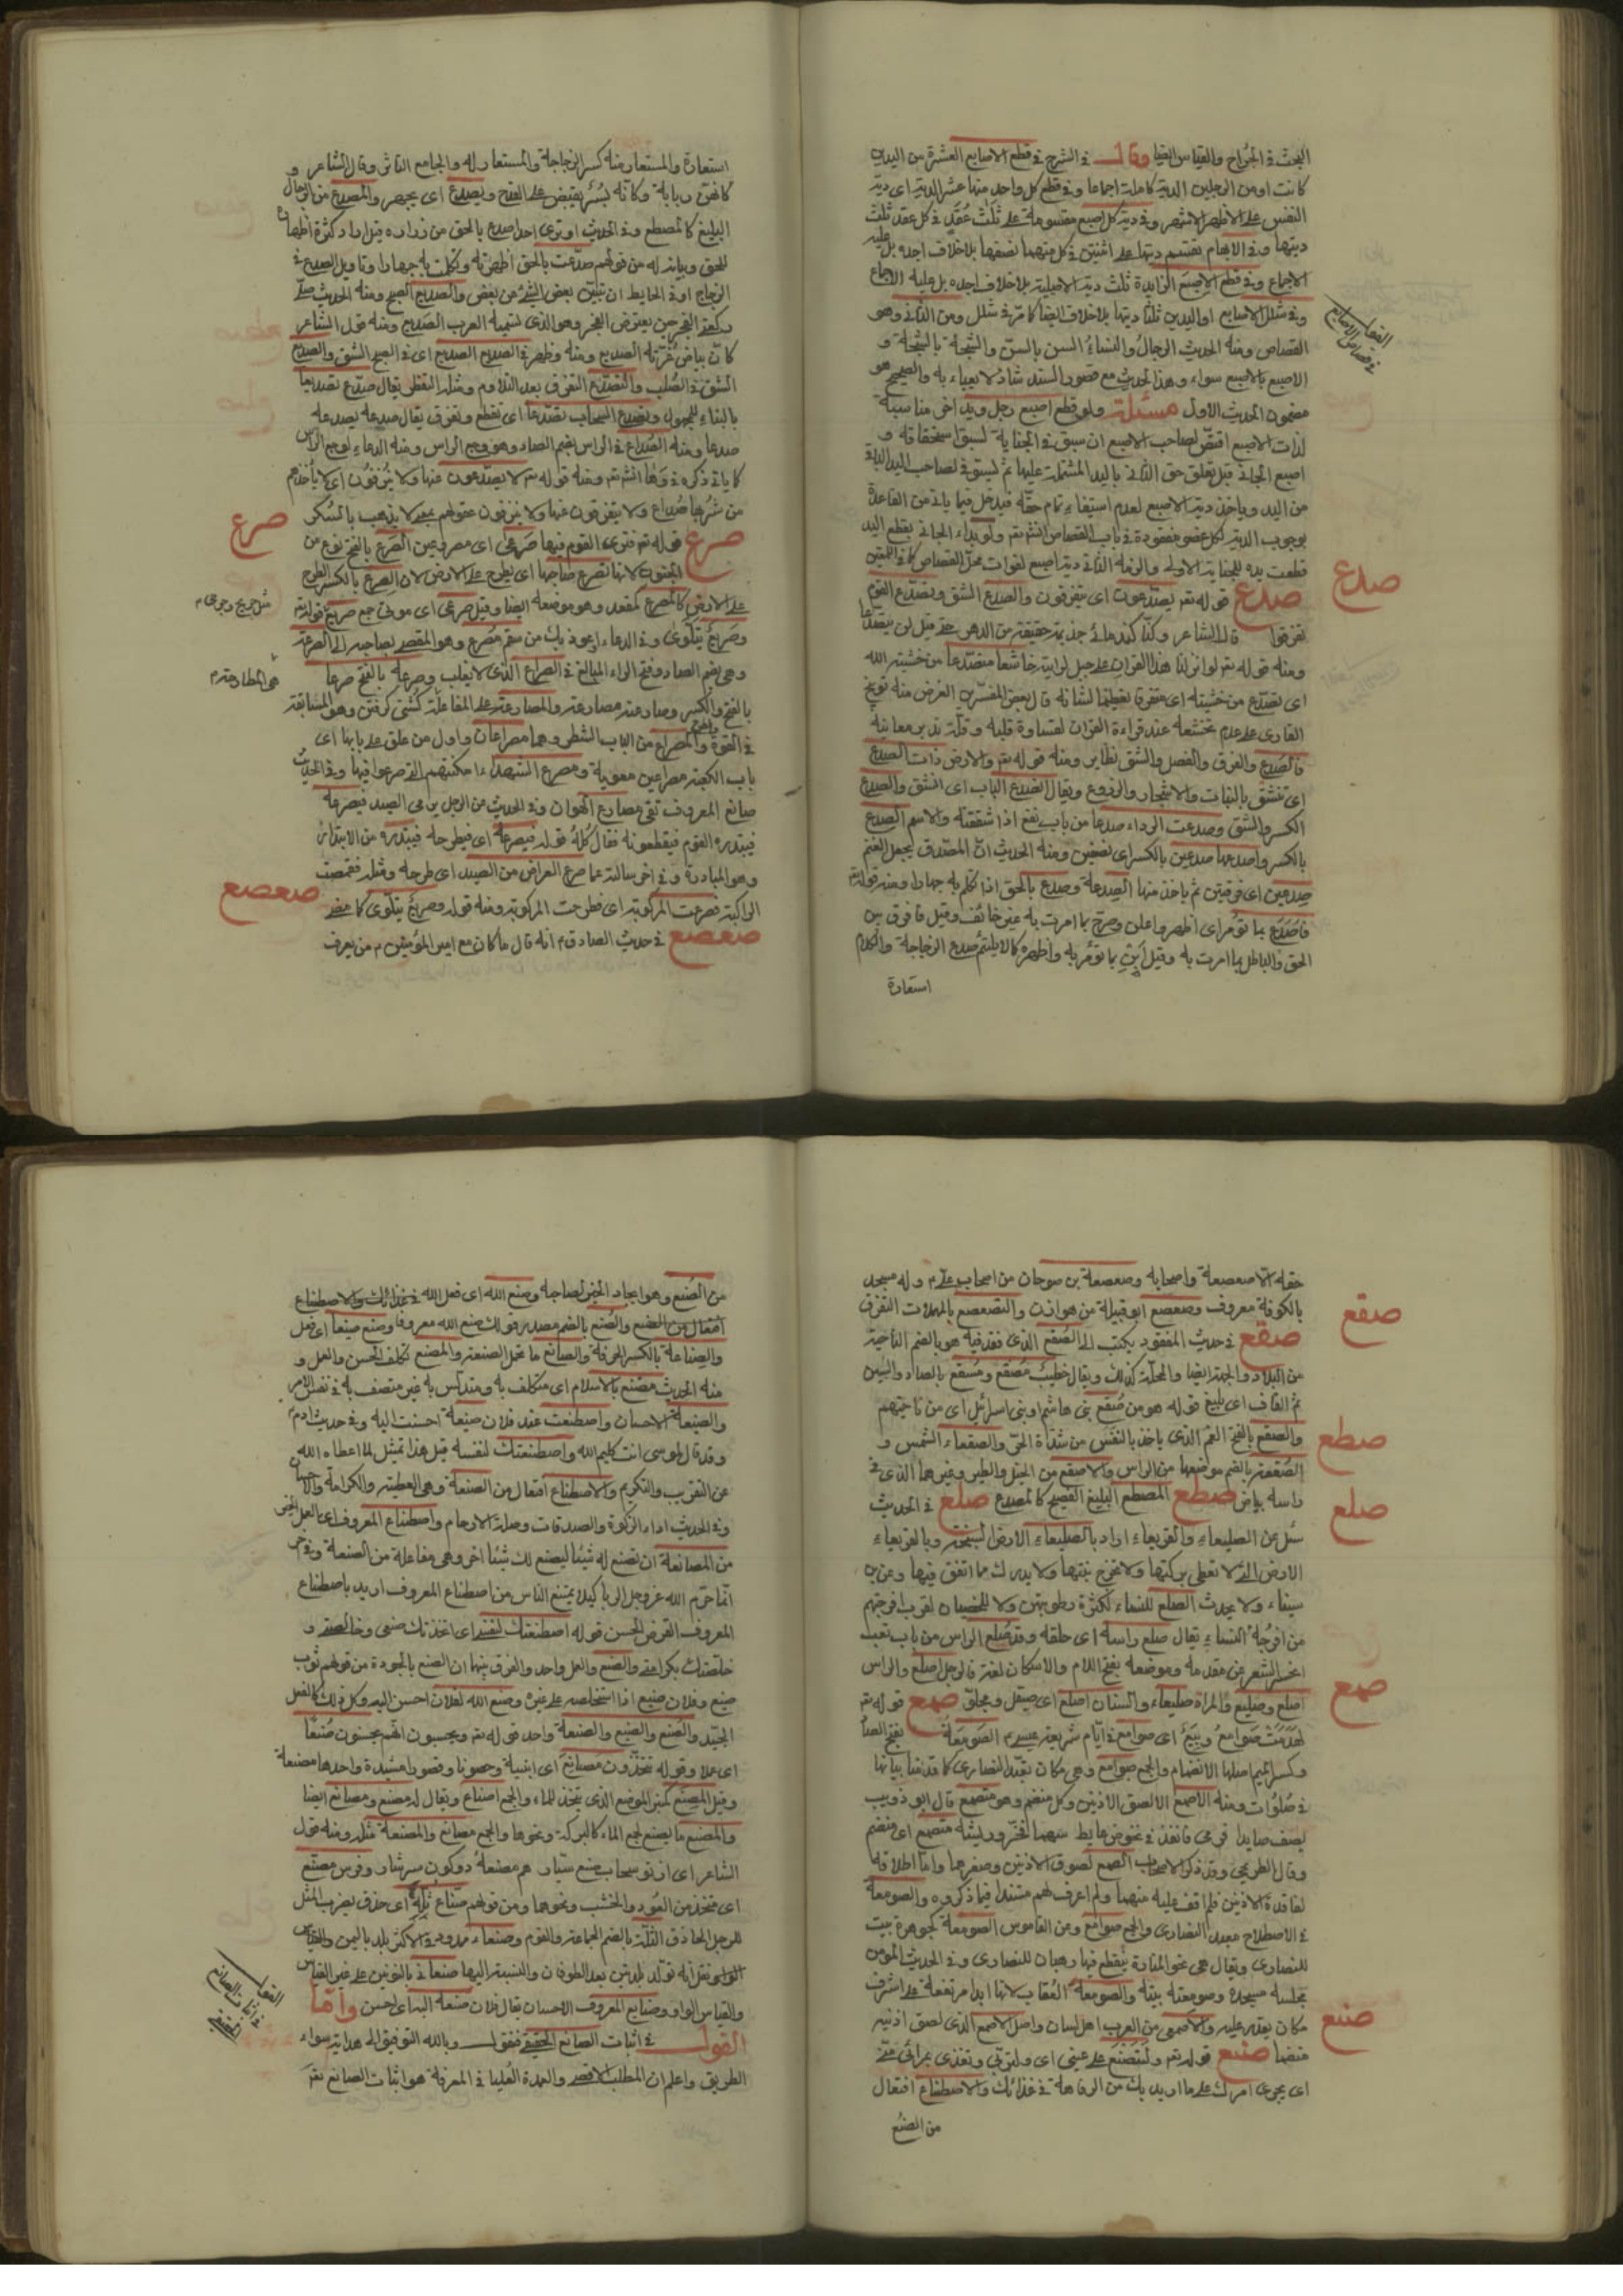 البحث في الجراح والقياس ايضا وقال في الشرح في قطع الاصابع العشرة من اليدين
كانت او من الرجلين الدية كاملة اجماعا وفي قطع كل واحد منها عشر الدية اى دية
النفس على الاظهر الاشهر وفي دية كل اصبع مقسومة على ثلث عقد في كل عقد ثلث
ديتها وفي الابهام تقسم ديتها على اثنتين في كل منهما نصفها بلا خلاف اجده بل عليه
الاجماع وفي قطع الاصبع الزايدة ثلث دية الاصلية بلا خلاف اجده بل عليه الاجماع
وفي شلل الاصابع او اليدين ثلثا ديتها بلا خلاف ايضا كما مر في شلل ومن الثاني وهو
القصاص ومنه الحديث الرجال والنساء السن بالسن والشجة بالشجة و
الاصبع بالاصبع سواء وهذا الحديث مع قصور السند شاذ لا يعباء به والصحيح هو
مضمون الحديث الاول مسئلة ولو قطع اصبع رجل ويد اخر مناسبة
لذات الاصبع اقتص لصاحب الاصبع ان سبق في الجناية لسبق استحقاقه و
من اليد وياخذ دية الاصبع لعدم استيفاء تمام حقه فيدخل فيما ياتي من القاعدة
بوجوب الدية لكل عضو مفقودة في باب القصاص انشء تعم ولو بداء الجاني بقطع اليد
قطعت يده للجناية الاولى والزمه الثاني دية اصبع لفوات محل القصاص
صدع قوله تعم يصدعون اى يتفرقون والصدع الشق وتصدع القوم
تفرقوا قال الشاعر وكنا كندمانى جذيمة حقيقة من الدهر حتى قيل لن يتصدعا
ومنه قوله تعم لو انزلنا هذا القران على جبل لرايته خاشعا متصدعا من خشية الله
اى تصدع من خشيته اى متفرقا تعظيما لشانه قال بعض المفسرين الغرض منه توبيخ
القارى على عدم تخشعه عند قراءة القران لقساوة قلبه وقلة تدبر معانيه
فالصدع والفرق والفصل والشق نظاير ومنه قوله تعم والارض ذات الصدع
اى تنشق بالنبات والاشجار والزروع ويقال انصدع الباب اى انشق والصدع
الكسر والشق وصدعت الرداء صدعا من باب نفع اذا شققته والاسم الصدع
بالكسر واصدعها صدعين بالكسر اى نصفين ومنه الحديث ان المصدق يجعل الغنم
صدعين اى فرقتين ثم ياخذ منها الصدقة وصدع بالحق اذا تكلم به جهارا ومنه قوله تعم
فاصدع بما تؤمر اى اظهر واعلن وصرح بما امرت به غير خائف وقيل فافرق بين
الحق والباطل بما امرت به وقيل ابن بما تؤمر به واظهره كما لا يلتئم صدع الزجاجة والكلام
استعارة
صدع
القول في قصاص الاصابع
استعارة والمستعار منه كسر الزجاجة والمستعار له والجامع التاثر وقال الشاعر و
كانهن ربابة وكانه يسر يفيض على القدح ويصدع اى يجهر والمصدع من الرجال
البليغ كالمصطع وفي الحديث او ترى احدا صدع بالحق من زرارة قيل اراد كثرة اظهاره
للحق وبيانه له من قولهم صدعت بالحق اظهرته وتكلمت به جهارا وتاويل الصدع في
الزجاج او في الحايط ان تبين بعض الشئ عن بعض والصديع الصبح ومنه الحديث صل
ركعتي الفجر حين يعترض الفجر وهو الذى تسميه العرب الصديع ومنه قول الشاعر
كان بياض غرته الصديع ومنه وظهر في الصديع الصديع اى في الصبح الشق والصديع
الشق في الصلب والتصدع التفرق بعد التلاؤم ومثله التفطر يقال صدع تصديعا
بالبناء للمجهول وتصدع السحاب تصدعا اى تقطع وتفرق يقال صدعه يصدعه
صدعا ومنه الصداع في الراس بضم الصاد وهو وجع الراس ومنه الدعاء لوجع الراس
كما ياتي ذكره في وها انشء تعم ومنه قوله تعم لا يصدعون عنها ولا ينزفون اى لا ياخذهم
من شربها صداع ولا يتفرقون عنها ولا ينزفون عقولهم بمعنى لا يذهب بالسكر
صرع قوله تعم فترى القوم فيها صرعى اى مصروعين الصرع بالفتح نوع من
الجنون لانها تصرع صاحبها اى يطرح على الارض لان الصرع بالكسر الطرح
على الارض كالمصرع كمقعد وهو موضعه ايضا وقيل صرعى اى موتى جمع صريع قوله تعم
وصريع يتلوى وفي الدعاء اعوذ بك من سقم مصرع وهو المفضى بصاحبه الى الصرعة
وهي بضم الصاد وفتح الراء المبالغ في الصراع الذى لا يغلب وصرعه بالفتح صرعا
بالفتح والكسر وصارعته مصارعة والمصارعة على المفاعلة كشتى گرفتن وهو المسابقة
في القوة والمصراع من الباب الشطر وهما مصراعان واول من علق على بابها اى
باب الكعبة مصراعين معوية ومصرع الشهداء امكنتهم التى صرعوا فيها وفي الحديث
صانع المعروف تقى مصارع الهوان وفي الحديث عن الرجل يرمى الصيد فيصرعه
فيبتدره القوم فيقطعونه فقال كله قوله فيصرعه اى فيطرحه فيبتدره من الابتدار
وهو المبادرة وفي اخر سالته عما صرع المعراض من الصيد اى طرحه ومثله فقمصت
الراكبة فصرعت المركوبة اى فطرحت المركوبة ومنه قوله وصريع يتلوى كما مضى
صعصع في حديث الصادق م انه قال ما كان مع امير المؤمنين م من يعرف
صرع
صعصع
حقه الا صعصعة واصحابه وصعصعة بن صوحان من اصحاب على م وله مسجد
بالكوفة معروف وصعصع ابو قبيلة من هوازن والتصعصع بالمهملات التفرق
صقع في حديث المفقود يكتب الى الصقع الذى فقد فيه هو بالضم الناحية
من البلاد والجهة ايضا والمحلة كذلك ويقال خطيب مصقع ومسقع بالصاد والسين
ثم القاف اى بليغ قوله هو من صقع بنى هاشم او بنى اسرائيل اى من ناحيتهم
والصقع بالفتح الغم الذى ياخذ بالنفس من شدة الحر والصقعاء الشمس و
الصقعة بالضم موضعها من الراس والاصقع من الخيل والطير وغيرهما الذى في
راسه بياض صطع المصطع البليغ الفصيح كالمصدع صلع في الحديث
سئل عن الصليعاء والقريعاء اراد بالصليعاء الارض السبخة وبالقريعاء
الارض التى لا تعطى بركتها ولا تخرج نبتها ولا يدرك ما انفق فيها وعن بن
سيناء ولا يحدث الصلع للنساء لكثرة رطوبتهن ولا للخصيان لقرب امزجتهم
من امزجة النساء يقال صلع راسه اى حلقه وقد صلع الراس من باب تعب
انحسر الشعر عن مقدمه وموضعه بفتح اللام والاسكان لغة فالرجل اصلع والراس
اصلع وصليع والمراة صلعاء والسنان اصلع اى صيقل ومجلو صمع قوله تعم
لهدمت صوامع وبيع اى صوامع في ايام شريعة عيسى م الصومعة بفتح الصاد
وكسر الميم اصلها الانضمام والجمع صوامع وهي مكان تعبد النصارى كما قدمنا بيانها
في صلوات ومنه الاصمع الالصق الاذنين وكل منضم وهو متصمع قال ابو ذويب
يصف صايدا فرمى فانفذ في نحوص عايط سهما فخر وريشه متصمع اى منضم
وقال الطريحي وقد ذكر الاصحاب الصمع لصوق الاذنين وصغرهما واما اطلاقه
لفاقدة الاذنين فلم اقف عليه منهما ولم اعرف لهم مستندا فيما ذكروه والصومعة
في الاصطلاح معبد النصارى والجمع صوامع وعن القاموس الصومعة كجوهرة بيت
للنصارى ويقال هي نحو المنارة ينقطع فيها رهبان النصارى وفي الحديث المؤمن
مجلسه مسجده وصومعته بيته والصومعة العقاب لانها ابدا مرتفعة على اشرف
مكان يقدر عليه والاصمعى من العرب اهل لسان واصل الاصمع الذى لصق اذنيه
منضما صنع قوله تعم ولتصنع على عينى اى ولتربى وتغذى بمرائى منى
اى يجرى امرك على ما اريد بك من الرفاهة في غذائك والاصطناع افتعال
من الصنع
صقع
صطع
صلع
صمع
صنع
من الصنع وهو ايجاد الخير لصاحبه وصنع الله اى فعل الله في غذائك والاصطناع
افتعال من الصنع والصنع بالضم مصدر قولك صنع الله معروفا وصنع صنيعا اى فعل
والصناعة بالكسر الحرفة والصانع ما تحمل الصنعة والمصنع تكلف الحسن والعمل و
منه الحديث مصنع بالاسلام اى متكلف به ومتدلس به غير متصف به في نفس الامر
والصنيعة الاحسان واصطنعت عند فلان صنيعة احسنت اليه وفي حديث ادم
وقد قال لموسى انت كليم الله واصطنعتك لنفسه قيل هذا تمثيل لما اعطاه الله
عن التقريب والتكريم والاصطناع افتعال من الصنعة وهي العطية والكرامة والاحسان
وفي الحديث اداء الزكوة والصدقات وصلة الارحام واصطناع المعروف اى العمل الخير
من المصانعة ان تصنع له شيئا ليصنع لك شيئا اخر وهي مفاعلة من الصنعة
انما حرم الله عز وجل الربا كيلا يمتنع الناس من اصطناع المعروف اريد باصطناع
المعروف القرض الحسن قوله اصطنعتك لنفسى اى اتخذتك صنعى وخالصتى و
خلصتك بكرامتى والصنع والعمل واحد والفرق بينهما ان الصنع بالجودة من قولهم ثوب
صنيع وفلان صنيع اذا استخلصه على غيره وصنع الله لفلان احسن اليه وكل ذلك كالفعل
الجيد والصنع والصنيع والصنعة واحد قوله تعم ويحسبون انهم يحسنون صنعا
اى عملا وقوله تتخذون مصانع اى ابنية وحصونا وقصورا مشيدة واحدها مصنعة
وقيل المصنع كمنبر الموضع الذى يتخذ للماء والجمع اصناع ويقال له مصنع ومصانع ايضا
والمصنع ما يصنع لجمع الماء كالبركة ونحوها والجمع مصانع والمصنعة مثله ومنه قول
اى متخذ من العود والخشب ونحوهما ومن قولهم صناع ثلة اى حذق يضرب المثل
للرجل الحاذق الثلة بالضم الجماعة والقوم وصنعاء ممدودة في الاكثر بلد باليمن
والقياس الواو وصنايع المعروف الاحسان يقال فلان صنعه اليه اى احسن واما
القول في اثبات الصانع الحقيقى فنقول وبالله التوفيق الى هداية سواء
الطريق واعلم ان المطلب الاقصى والعمدة العليا في المعرفة هو اثبات الصانع تعم
القول في اثبات الصانع الحقيقى